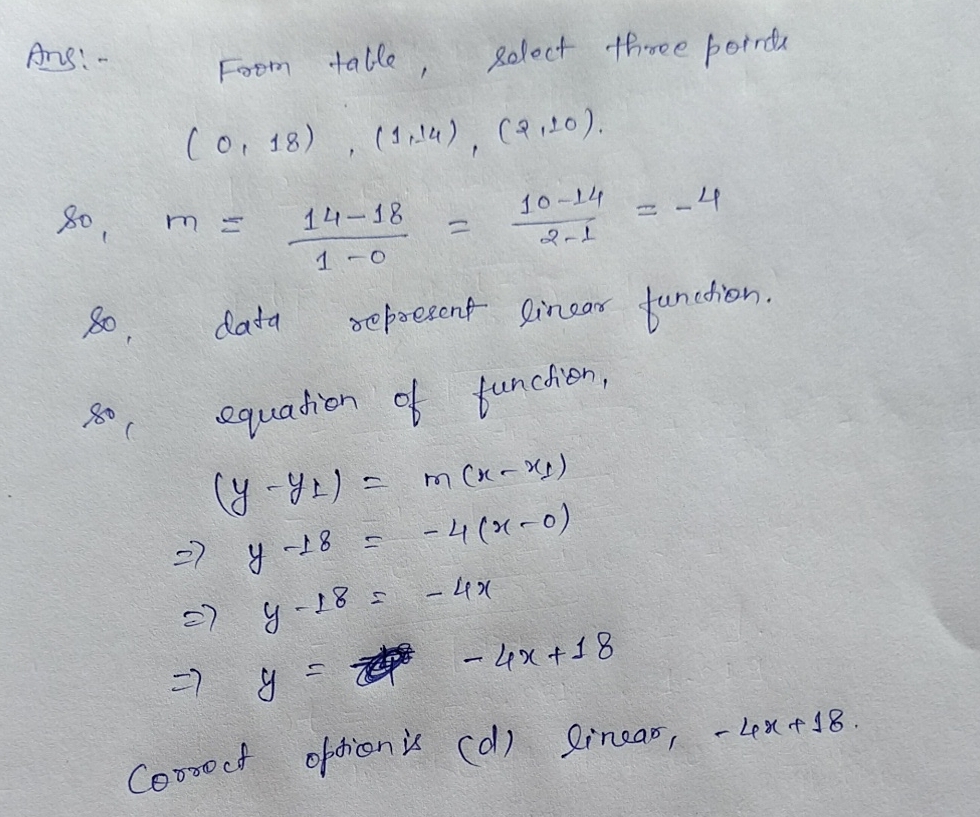 Ans:-
From table, select three points
(0, 18), (1,14), (2,10).
So, m = 14-18 / 1-0 = 10-14 / 2-1 = -4
So, data represent linear function.
So, equation of function,
(y-y1) = m(x-x1)
=> y-18 = -4(x-0)
=> y-18 = -4x
=> y = -4x+18
Correct option is (d) linear, -4x+18.